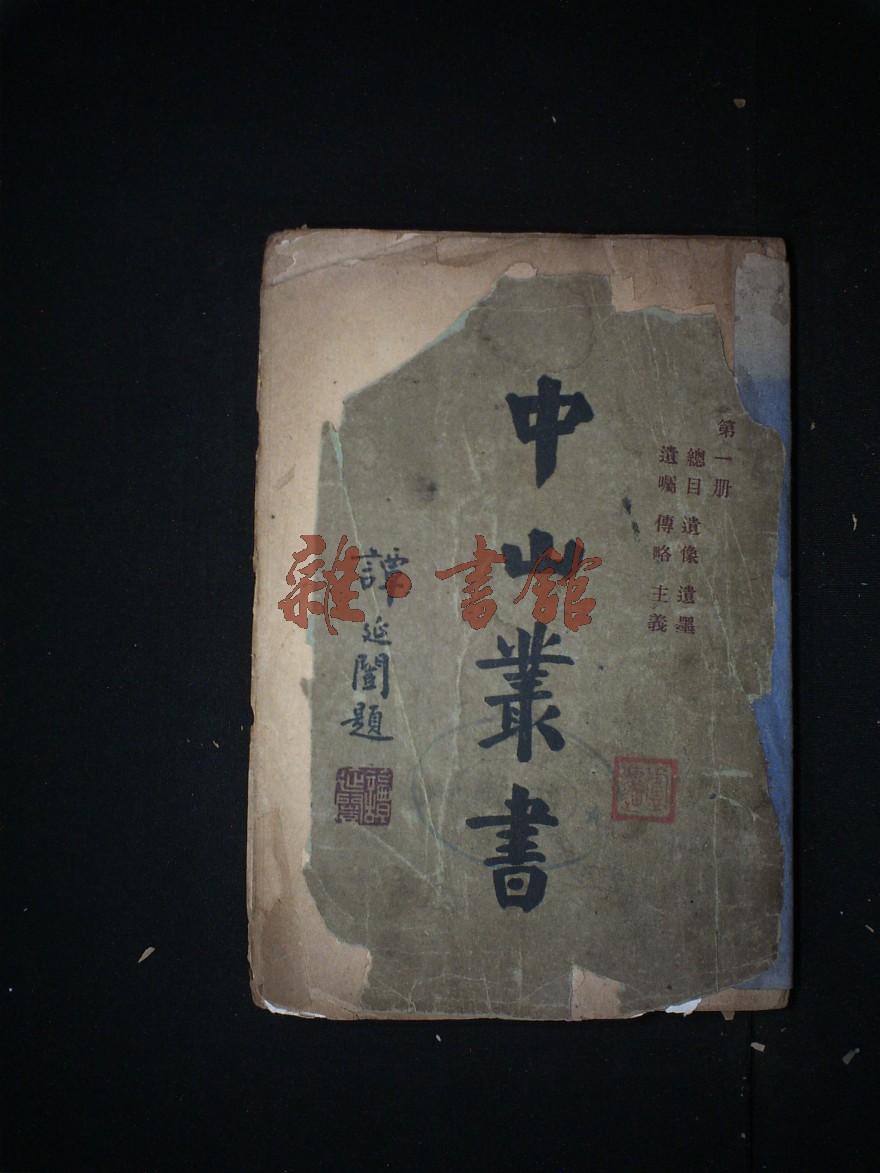 第一册
總目 遺像 遺墨
遺囑 傳略 主義
中山叢書
譚延闓題
譚延闓
雜·書館